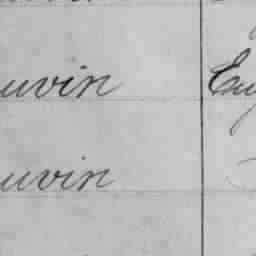 uvin Eu
uvin